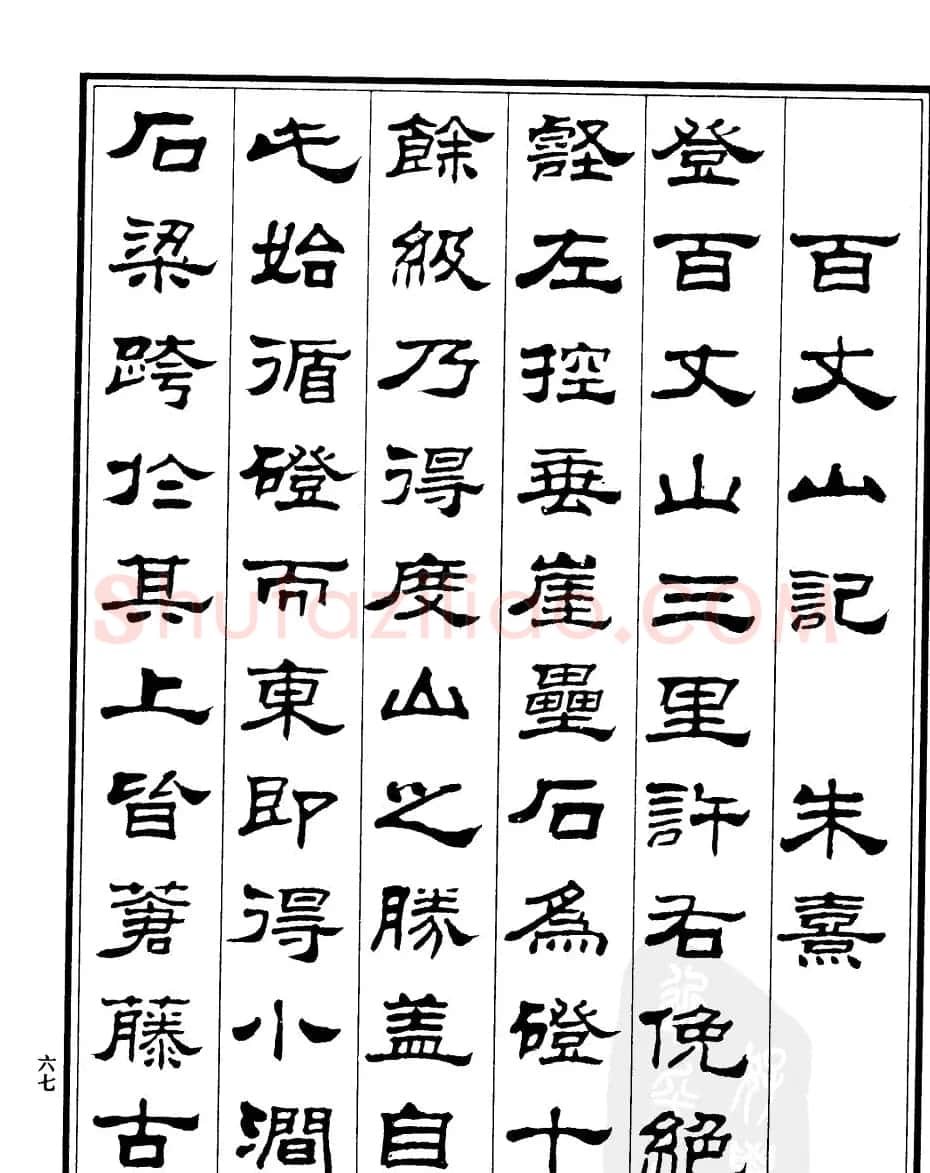 百丈山記 朱熹
登百丈山三里許右俛絕
壑左控垂崖壘石為磴十
餘級乃得度山之勝盖自
此始循磴而東即得小澗
石梁跨於其上皆蒼藤古
六七
Shufaziliao.COM